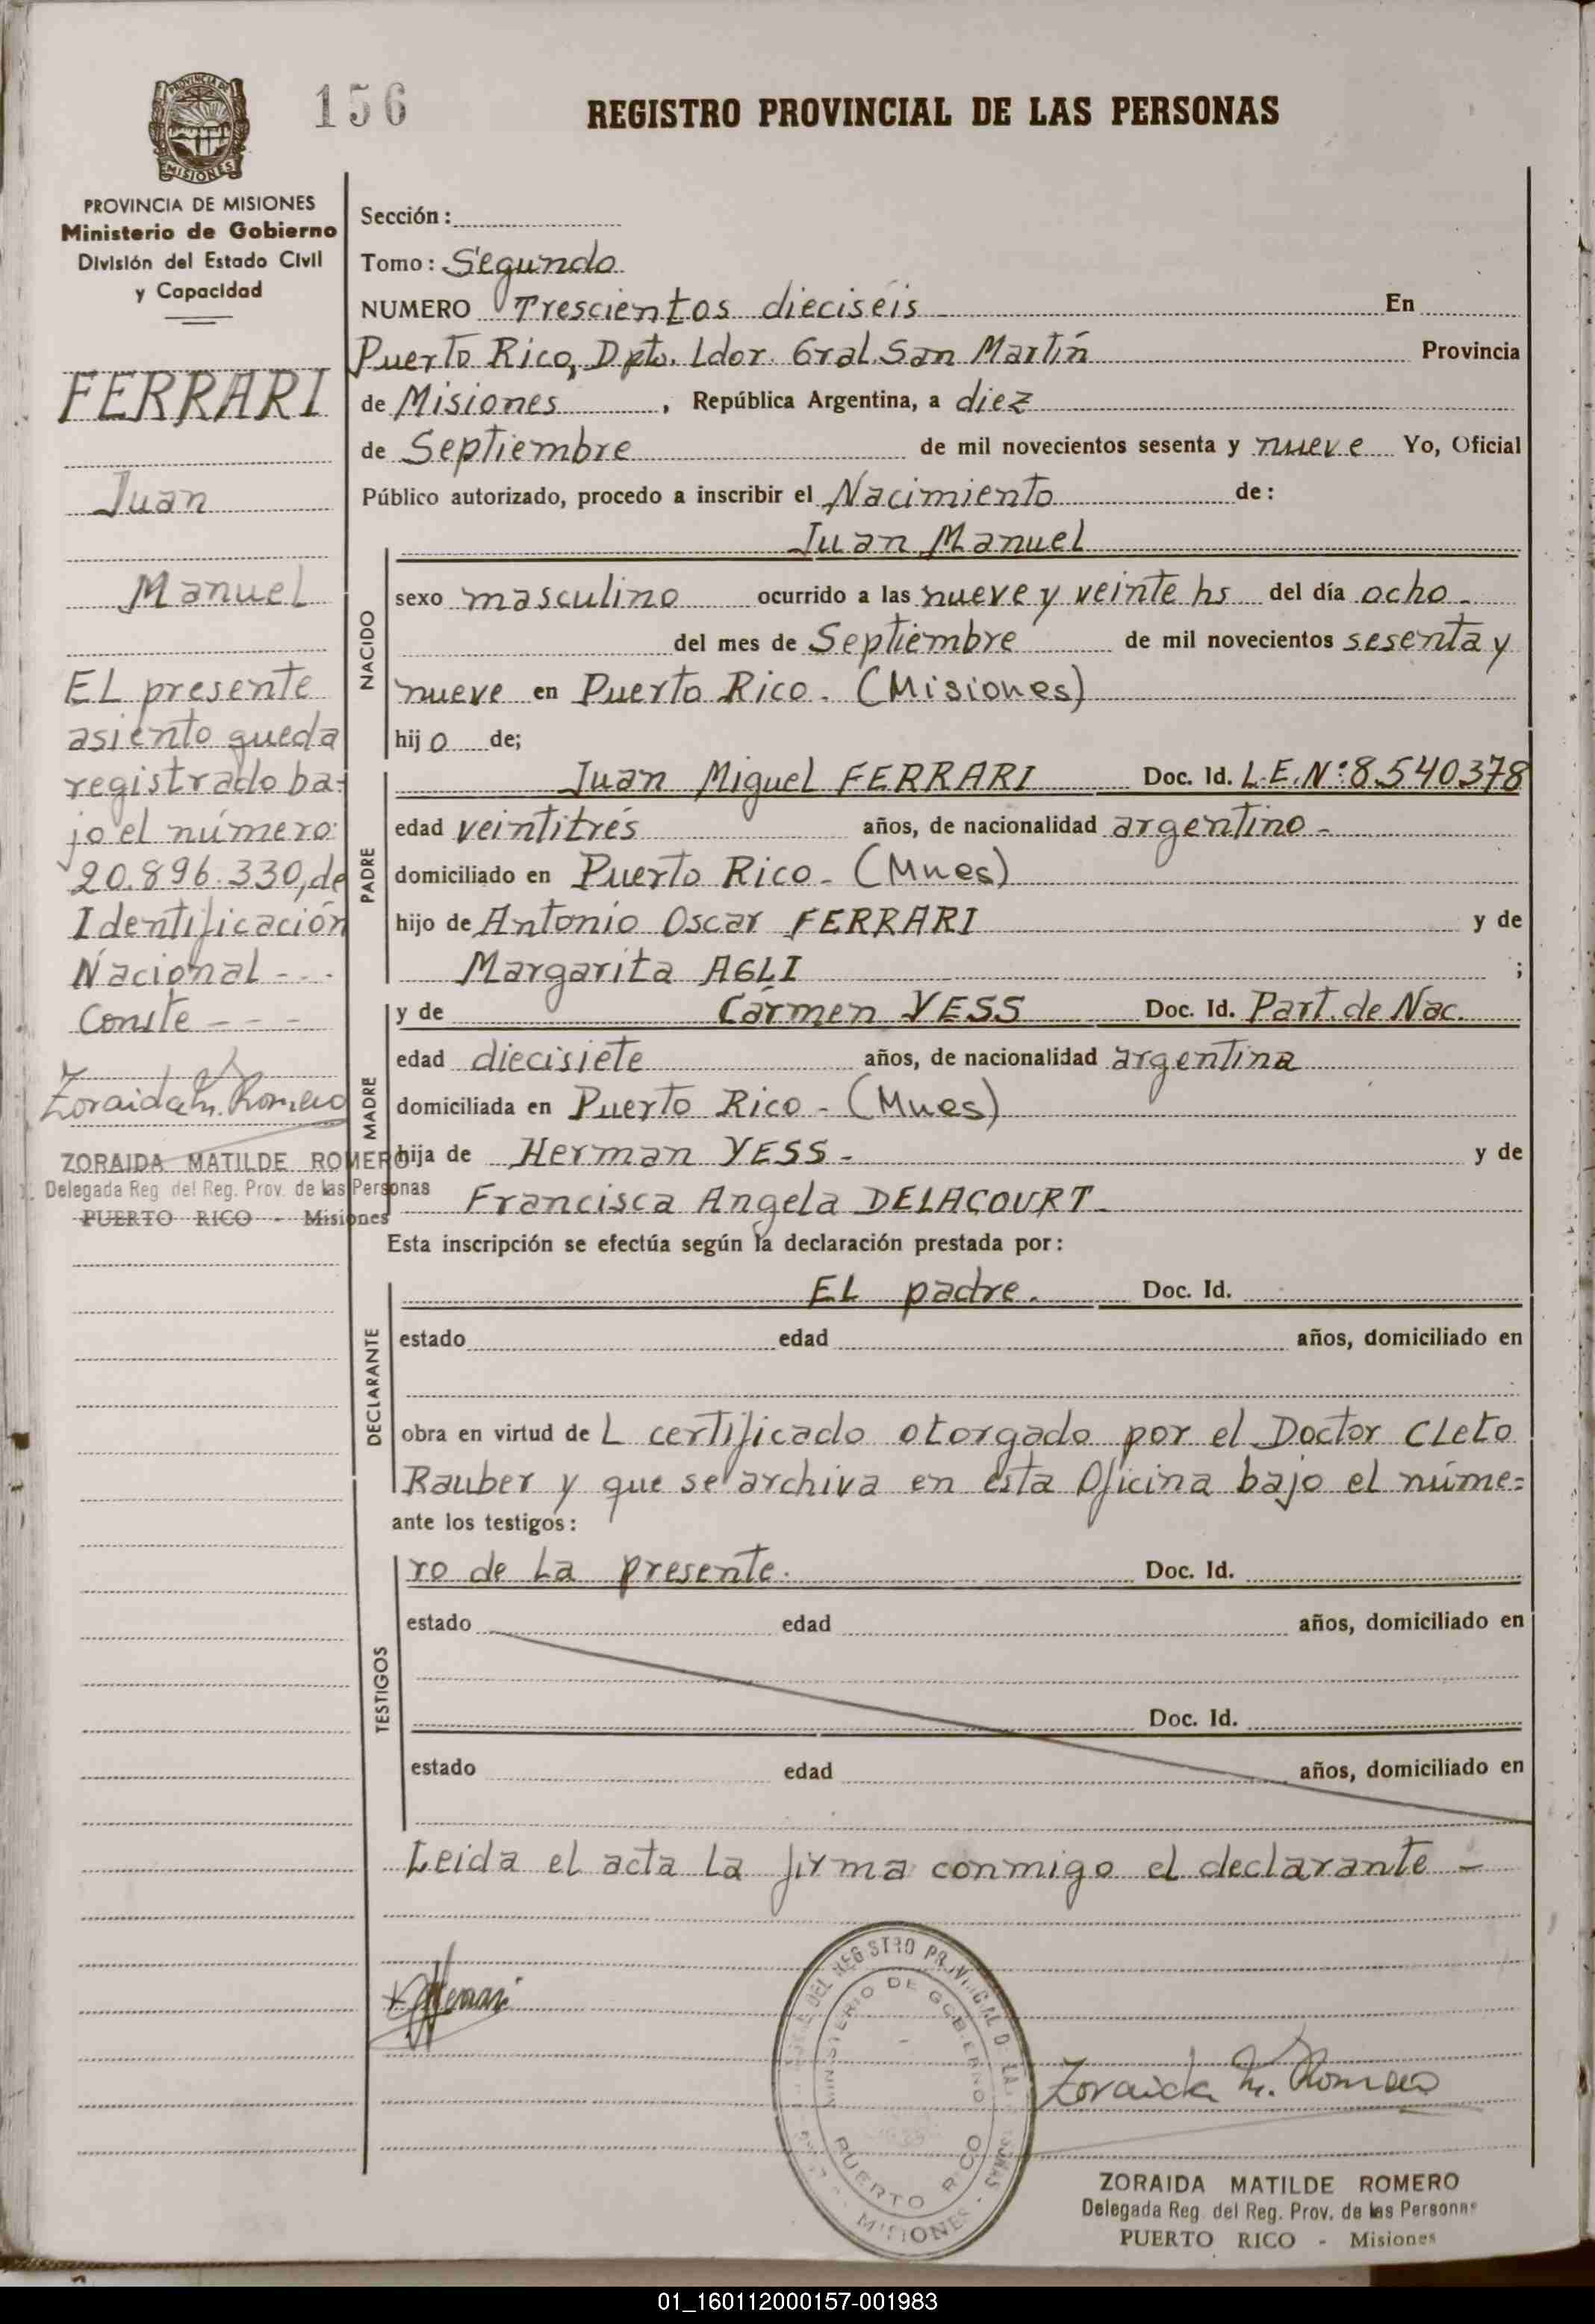 156
REGISTRO PROVINCIAL DE LAS PERSONAS
MISIONES
PROVINCIA DE MISIONES
Ministerio de Gobierno
División del Estado Civil
y Capacidad
FERRARI
Juan
Manuel
EL presente
asiento queda
registrado ba-
jo el número:
20.896.330, de
Identificación
Nacional - - -
Conste - - -
Zoraida M. Romero
ZORAIDA MATILDE ROMERO
Delegada Reg. del Reg. Prov. de las Personas
PUERTO RICO - Misiones
Sección:
Tomo: Segundo
NUMERO Trescientos dieciseis - En
Puerto Rico, Dpto. Ldor. Gral. San Martín Provincia
de Misiones, República Argentina, a diez
de Septiembre de mil novecientos sesenta y nueve Yo, Oficial
Público autorizado, procedo a inscribir el Nacimiento de:
Juan Manuel
NACIDO
sexo masculino ocurrido a las nueve y veinte hs del día ocho -
del mes de Septiembre de mil novecientos sesenta y
nueve en Puerto Rico. (Misiones)
hijo de;
PADRE
Juan Miguel FERRARI Doc. Id. L.E.Nº:8.540378
edad veintitrés años, de nacionalidad argentino -
domiciliado en Puerto Rico - (Mnes)
hijo de Antonio Oscar FERRARI y de
Margarita AGLI ;
MADRE
y de Carmen YESS Doc. Id. Part. de Nac.
edad diecisiete años, de nacionalidad argentina
domiciliada en Puerto Rico - (Mnes)
hija de Herman YESS - y de
Francisca Angela DELACOURT -
Esta inscripción se efectúa según la declaración prestada por:
DECLARANTE
EL padre. Doc. Id.
estado edad años, domiciliado en
obra en virtud de L certificado otorgado por el Doctor Cleto
Rauber y que se archiva en esta Oficina bajo el núme=
ante los testigos:
TESTIGOS
ro de La presente. Doc. Id.
estado edad años, domiciliado en
Doc. Id.
estado edad años, domiciliado en
Leida el acta La firma conmigo el declarante -
DEL REGISTRO PROVINCIAL DE LAS PERSONAS
MINISTERIO DE GOBIERNO
PUERTO RICO
MISIONES
Zoraida M. Romero
ZORAIDA MATILDE ROMERO
Delegada Reg. del Reg. Prov. de las Personas
PUERTO RICO - Misiones
01_160112000157-001983